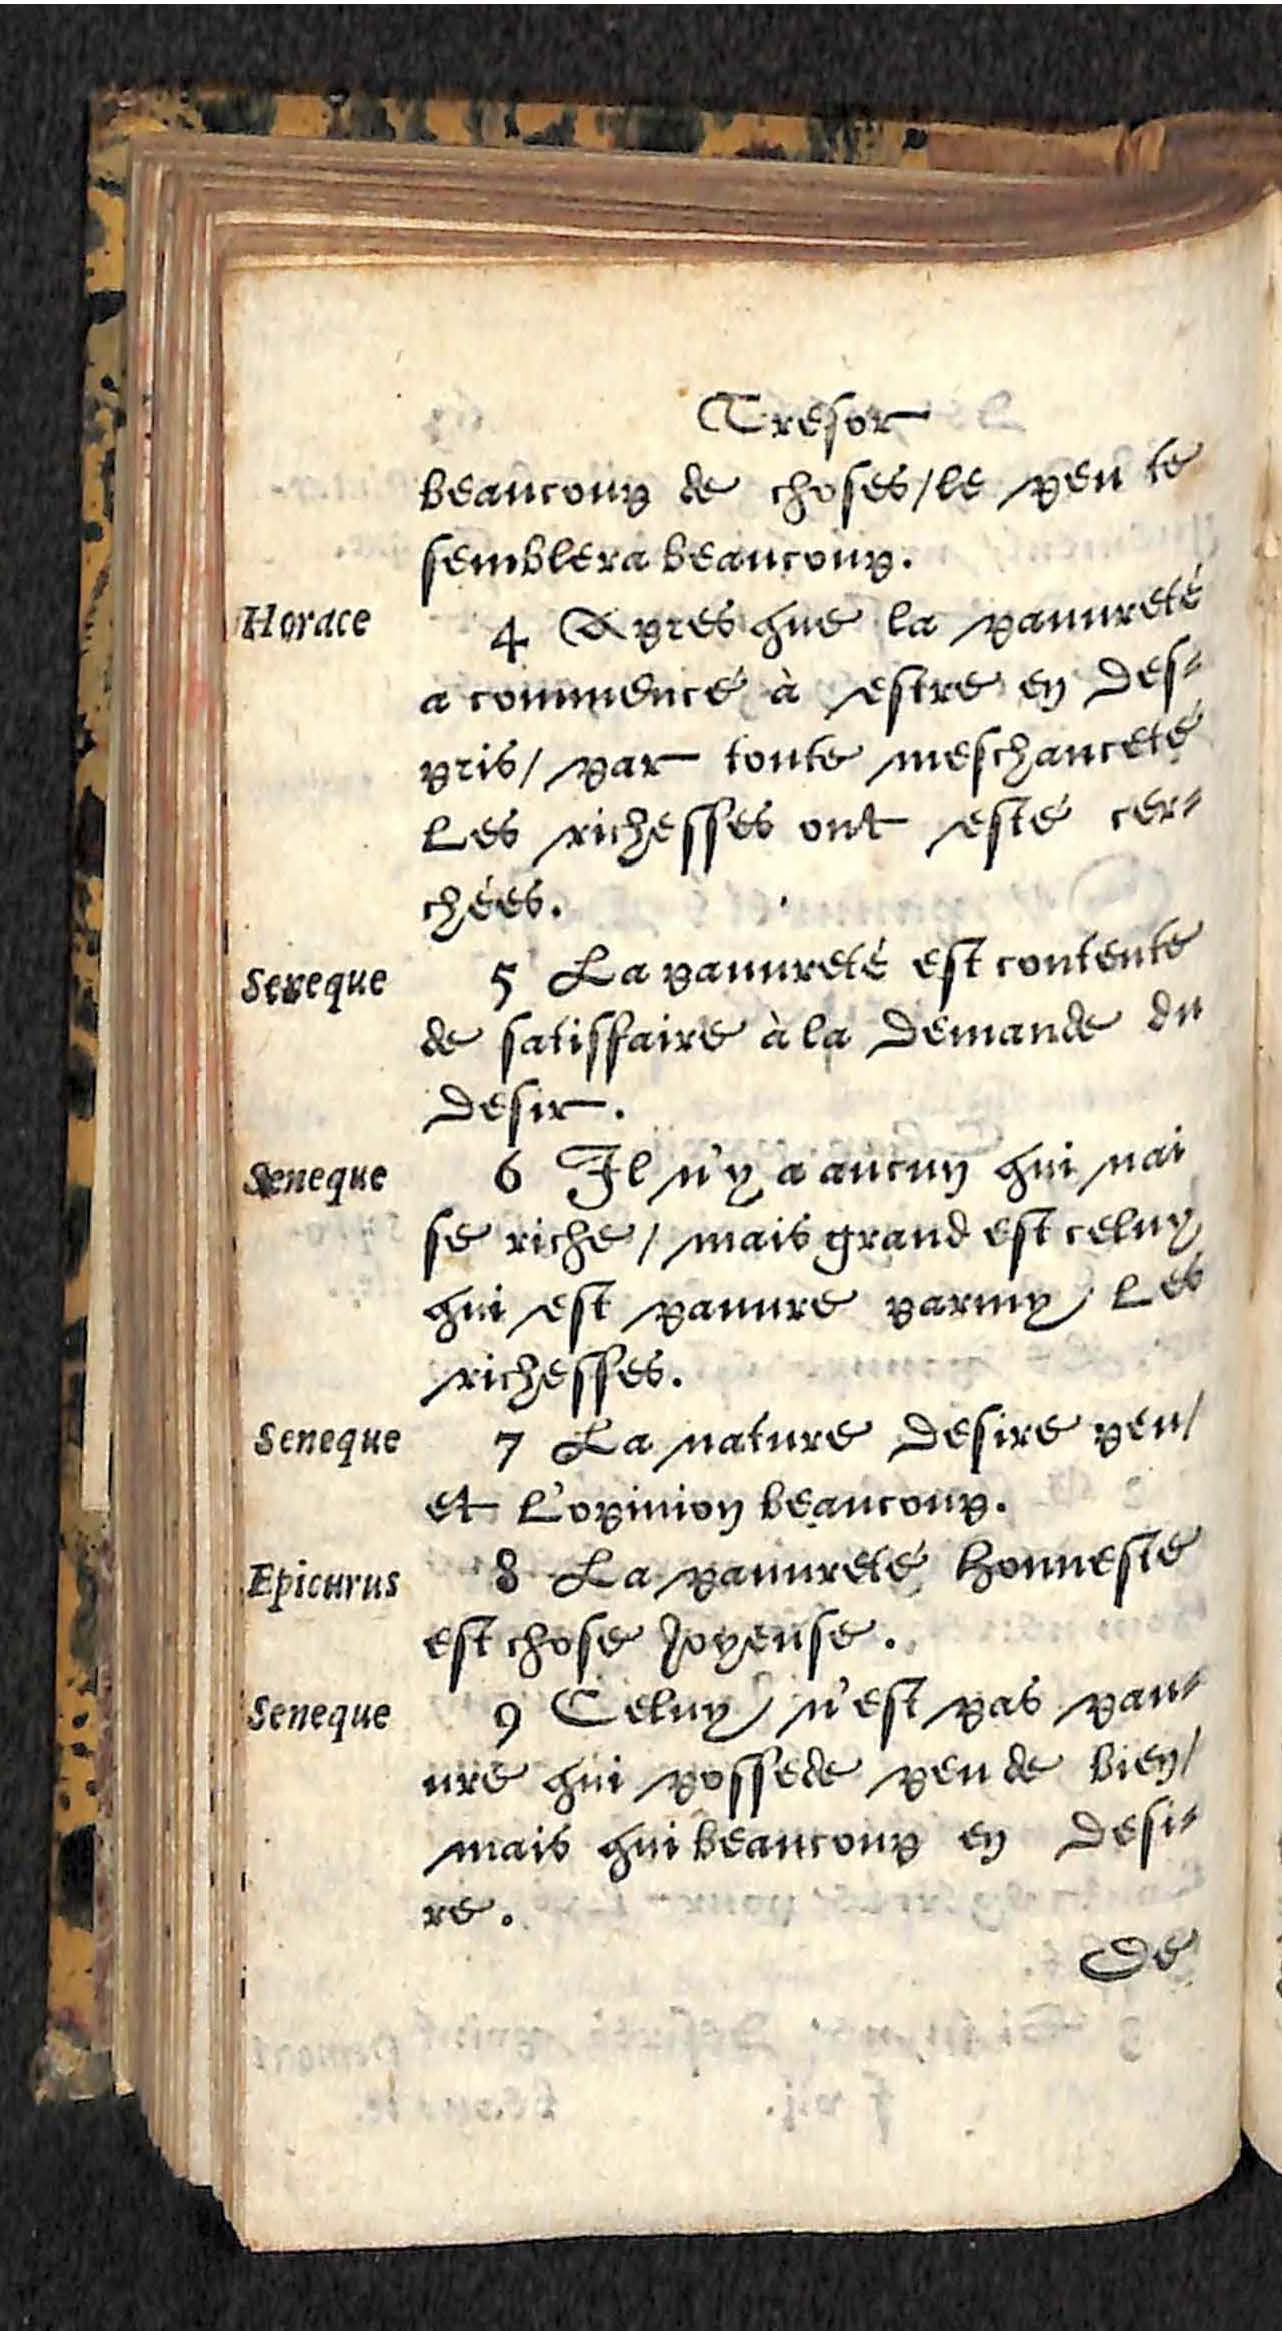 Tresor
beaucoup de choses/le peu te
semblera beaucoup.
Horace
4 Apres que la pauureté
a commencé à estre en des⸗
pris/ par toute meschanceté
les richesses ont esté cer⸗
chées.
Seneque
5 La pauureté est contente
de satisfaire à la demande du
desir.
Seneque
6 Il n'y a aucun qui nai
se riche/ mais grand est celuy
qui est pauure parmy les
richesses.
Seneque
7 La nature desire peu/
et l'opinion beaucoup.
Epicurus
8 La pauureté honneste
est chose joyeuse.
Seneque
9 Celuy n'est pas pau⸗
ure qui possede peu de bien/
mais qui beaucoup en desi⸗
re.
De